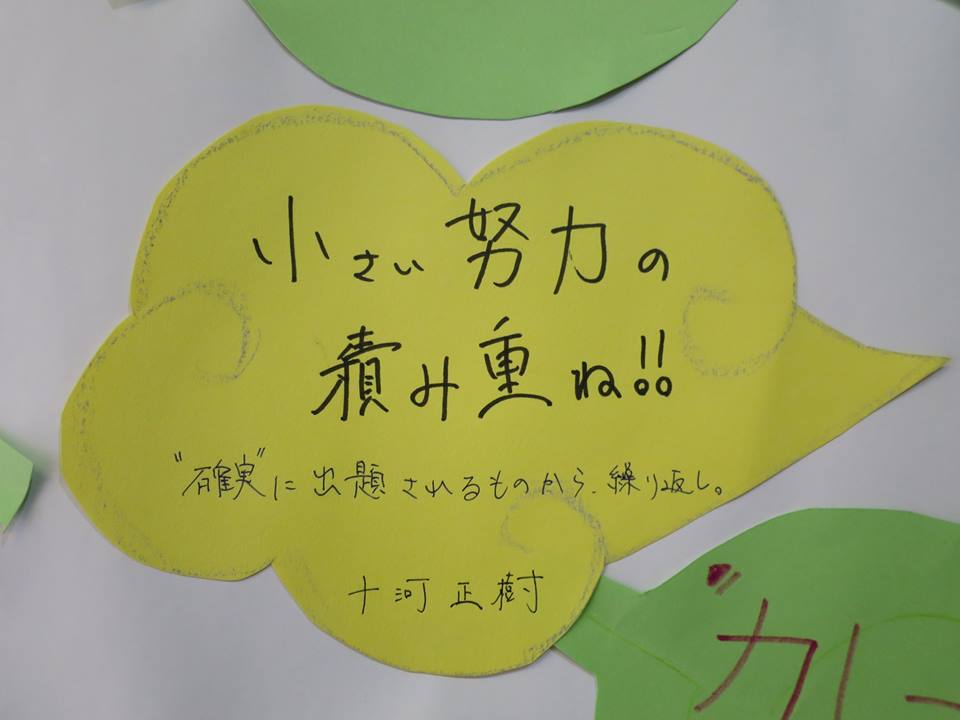 小さい努力の
積み重ね!!
"確実"に出題されるものから、繰り返し。
十河正樹
"カレー